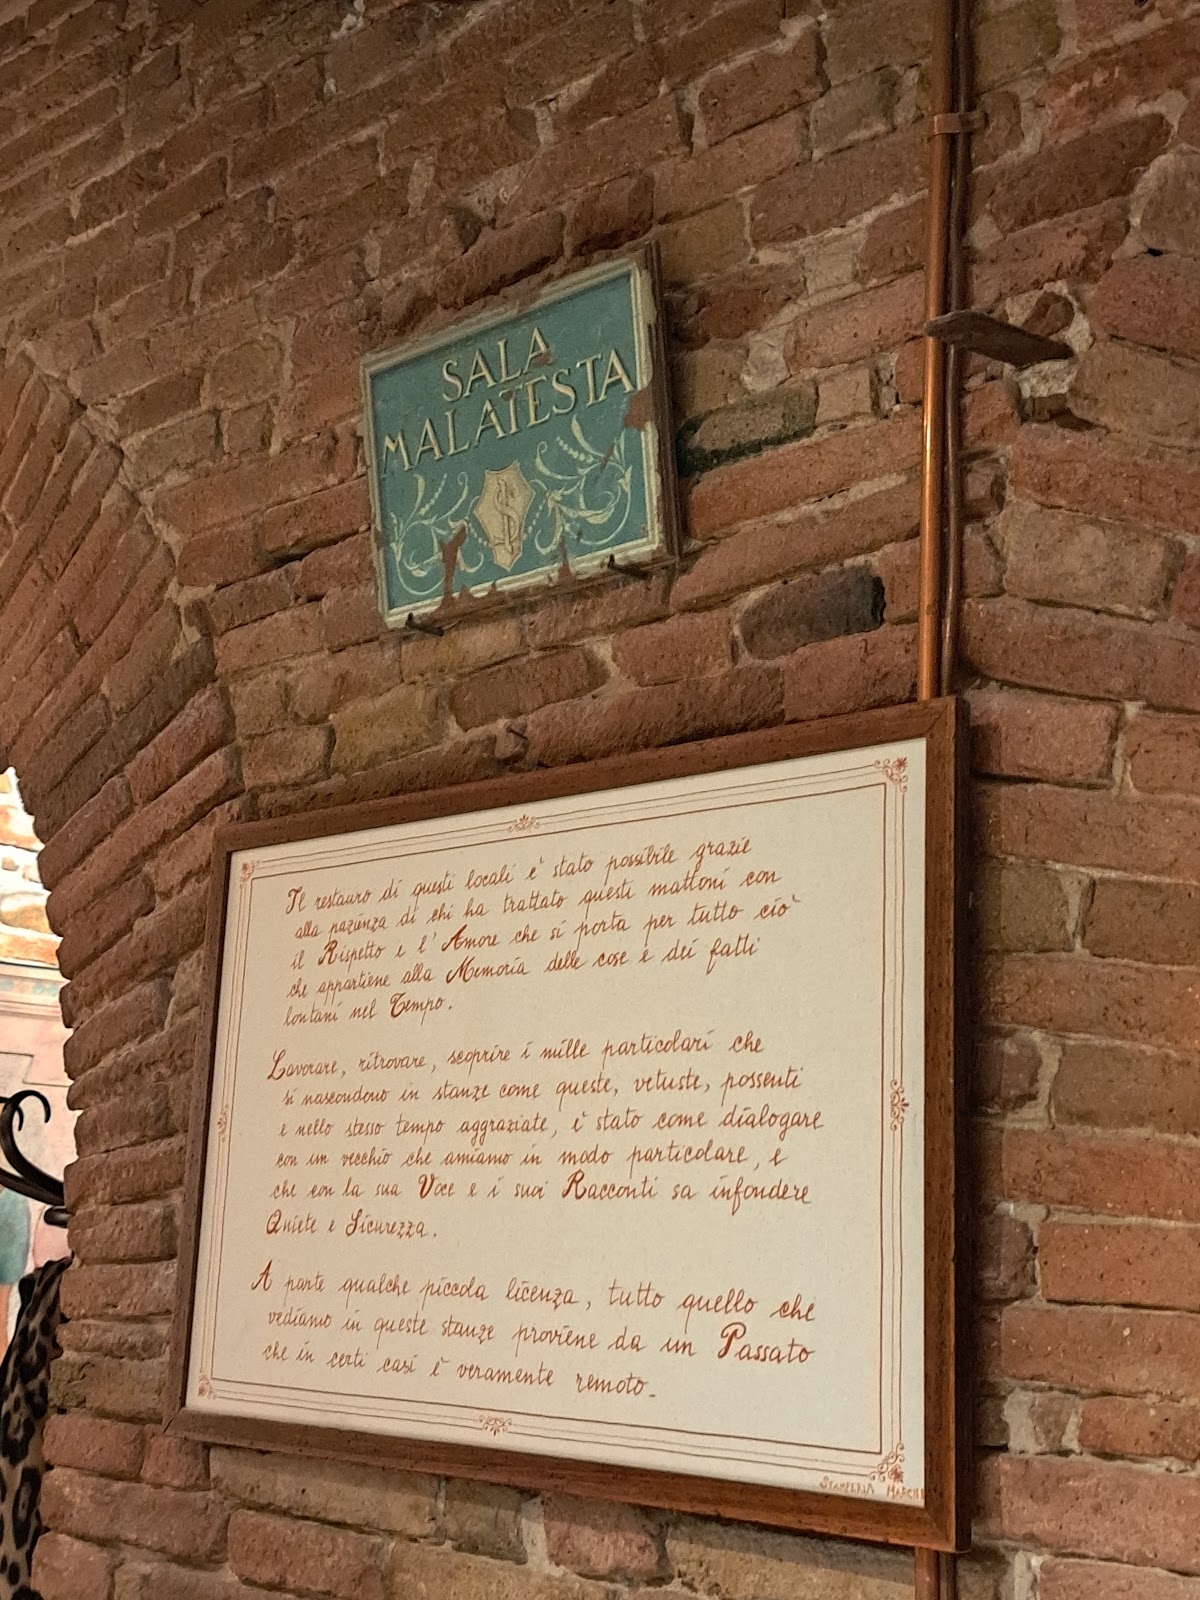 SALA
MALATESTA
Il restauro di questi locali è stato possibile grazie
alla pazienza di chi ha trattato questi mattoni con
il Rispetto e l'Amore che si porta per tutto ciò
che appartiene alla Memoria delle cose e dei fatti
lontani nel Tempo.
Lavorare, ritrovare, scoprire i mille particolari che
si nascondono in stanze come queste, vetuste, possenti
e nello stesso tempo aggraziate, è stato come dialogare
con un vecchio che amiamo in modo particolare, e
che con la sua Voce e i suoi Racconti sa infondere
Quiete e Sicurezza.
A parte qualche piccola licenza, tutto quello che
vediamo in queste stanze proviene da un Passato
che in certi casi è veramente remoto.
STAMPERIA